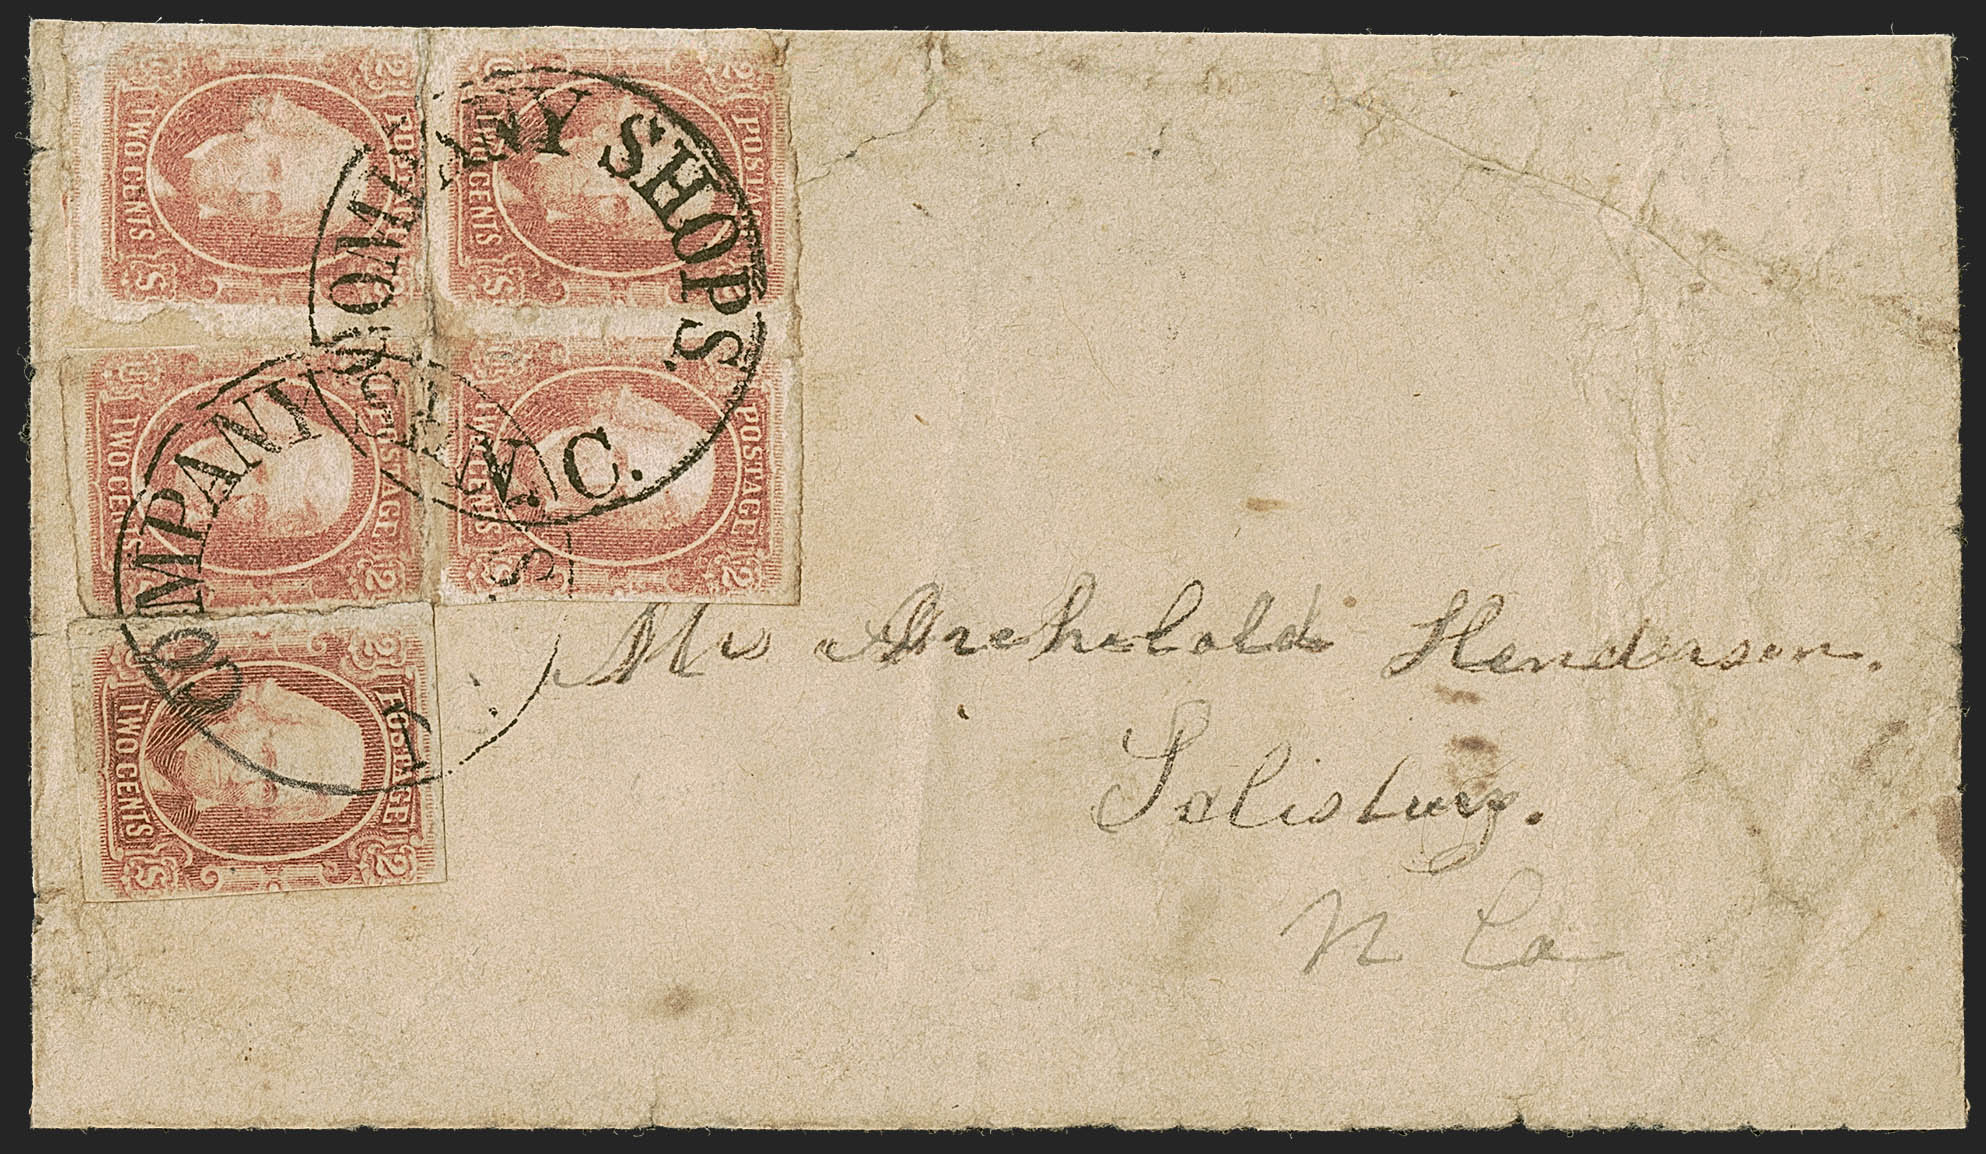 TWO CENTS
POSTAGE
2
TWO CENTS
POSTAGE
2
TWO CENTS
POSTAGE
2
TWO CENTS
POSTAGE
2
TWO CENTS
POSTAGE
2
2
COMPANY SHOPS.
N. C.
COMPANY
Mr Archibald Henderson.
Salisbury.
N Ca